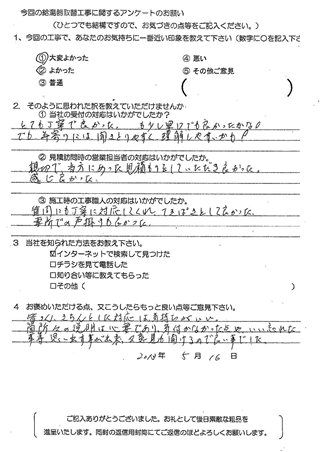 今回の給湯器取替工事に関するアンケートのお願い
(ひとつでも結構ですので、お気づきの点等をご記入ください。)
1、今回の工事で、あなたのお気持ちに一番近い印象を教えて下さい (数字に○を記入下さ
①大変よかった
④ 悪い
② よかった
⑤ その他ご意見
③ 普通
( )
2. そのように思われた訳を教えていただけませんか
① 当社の受付の対応はいかがでしたか?
とても丁寧で良かった。 もう少し早口でも良かったかな!
でも年寄りには聞きとりやすく理解しやすいかも!
② 見積訪問時の営業担当者の対応はいかがでしたか。
親切で、当方にあった見積もりをしていただき良かった。
感じ良かった。
③ 施工時の工事職人の対応はいかがでしたか。
質問にも丁寧に対応してくれ、てきぱきとして良かった。
要所での声掛けも良かった。
3 当社を知られた方法をお教え下さい。
☑インターネットで検索して見つけた
□チラシを見て電話した
□知り合い等に教えてもらった
□その他 ( )
4 お褒めいただける点、又こうしたらもっと良い点等ご意見下さい。
きちんとした対応は気持ちがいい。
箇所の説明は必要であり、気付かなかった点や、いい忘れた
事等思い出す事が出来、又意見が聞けるので良い事でした。
2018年 5月 16日
ご記入ありがとうございました。お礼として後日素敵な粗品を
進呈いたします。同封の返信用封筒にてご返信のほどよろしくお願いします。